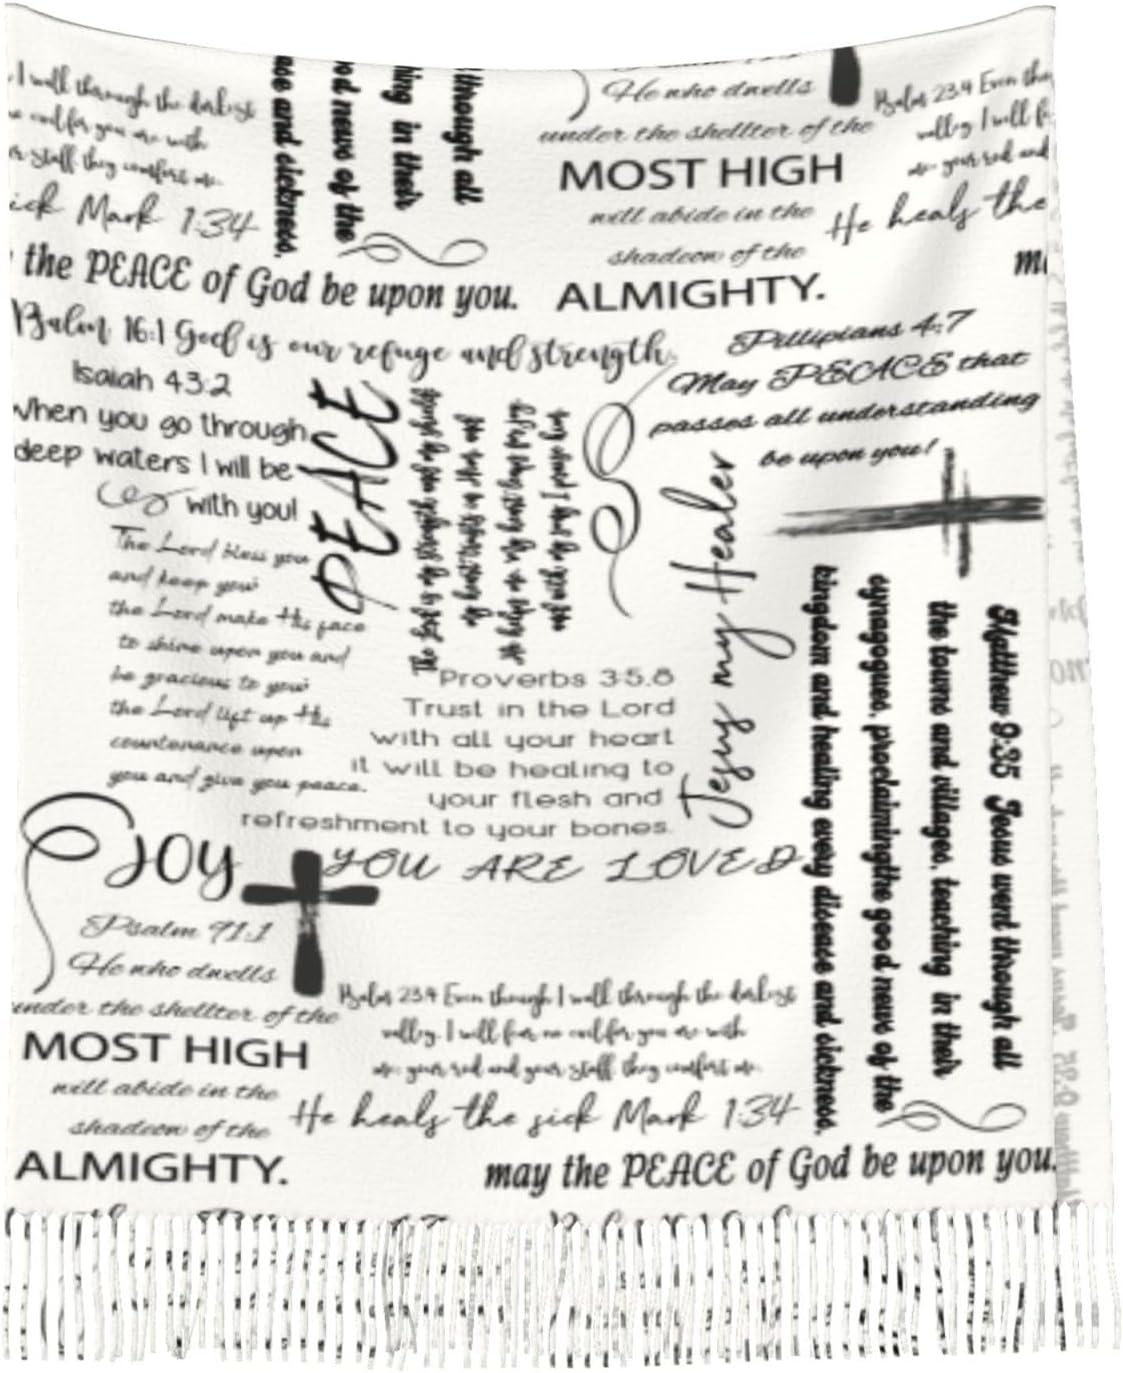 I walk through the darkest
evil for you are with
staff they comfort me.
sick Mark 1:34
the PEACE of God be upon you.
and sickness.
good news of the
in their
through all
He who dwells
under the shellter of the
MOST HIGH
will abide in the
shadeow of the
ALMIGHTY.
Psalm 23:4 Even tho
valley I will f
me: your rod and
He heals the
Psalm 16:1 God is our refuge and strength.
Isaiah 43:2
When you go through
deep waters I will be
with you!
PEACE
The Lord bless you
and keep you:
the Lord make His face
to shine upon you and
be gracious to you:
the Lord lift up His
countenance upon
you and give you peace.
Pillipians 4:7
May PEACE that
passes all understanding
be upon you!
Jesus my Healer
Proverbs 3:5.8
Trust in the Lord
with all your heart
it will be healing to
your flesh and
refreshment to your bones.
Matthew 9:35 Jesus went through all
the towns and villages, teaching in their
synagogues, proclaimingthe good news of the
kingdom and healing every disease and sickness.
JOY
YOU ARE LOVED
Psalm 91:1
He who dwells
under the shellter of the
MOST HIGH
will abide in the
shadeow of the
ALMIGHTY.
Psalm 23:4 Even though I walk through the darkest
valley. I will fear no evil for you are with
me: your rod and your staff they comfort me.
He heals the sick Mark 1:34
may the PEACE of God be upon you.